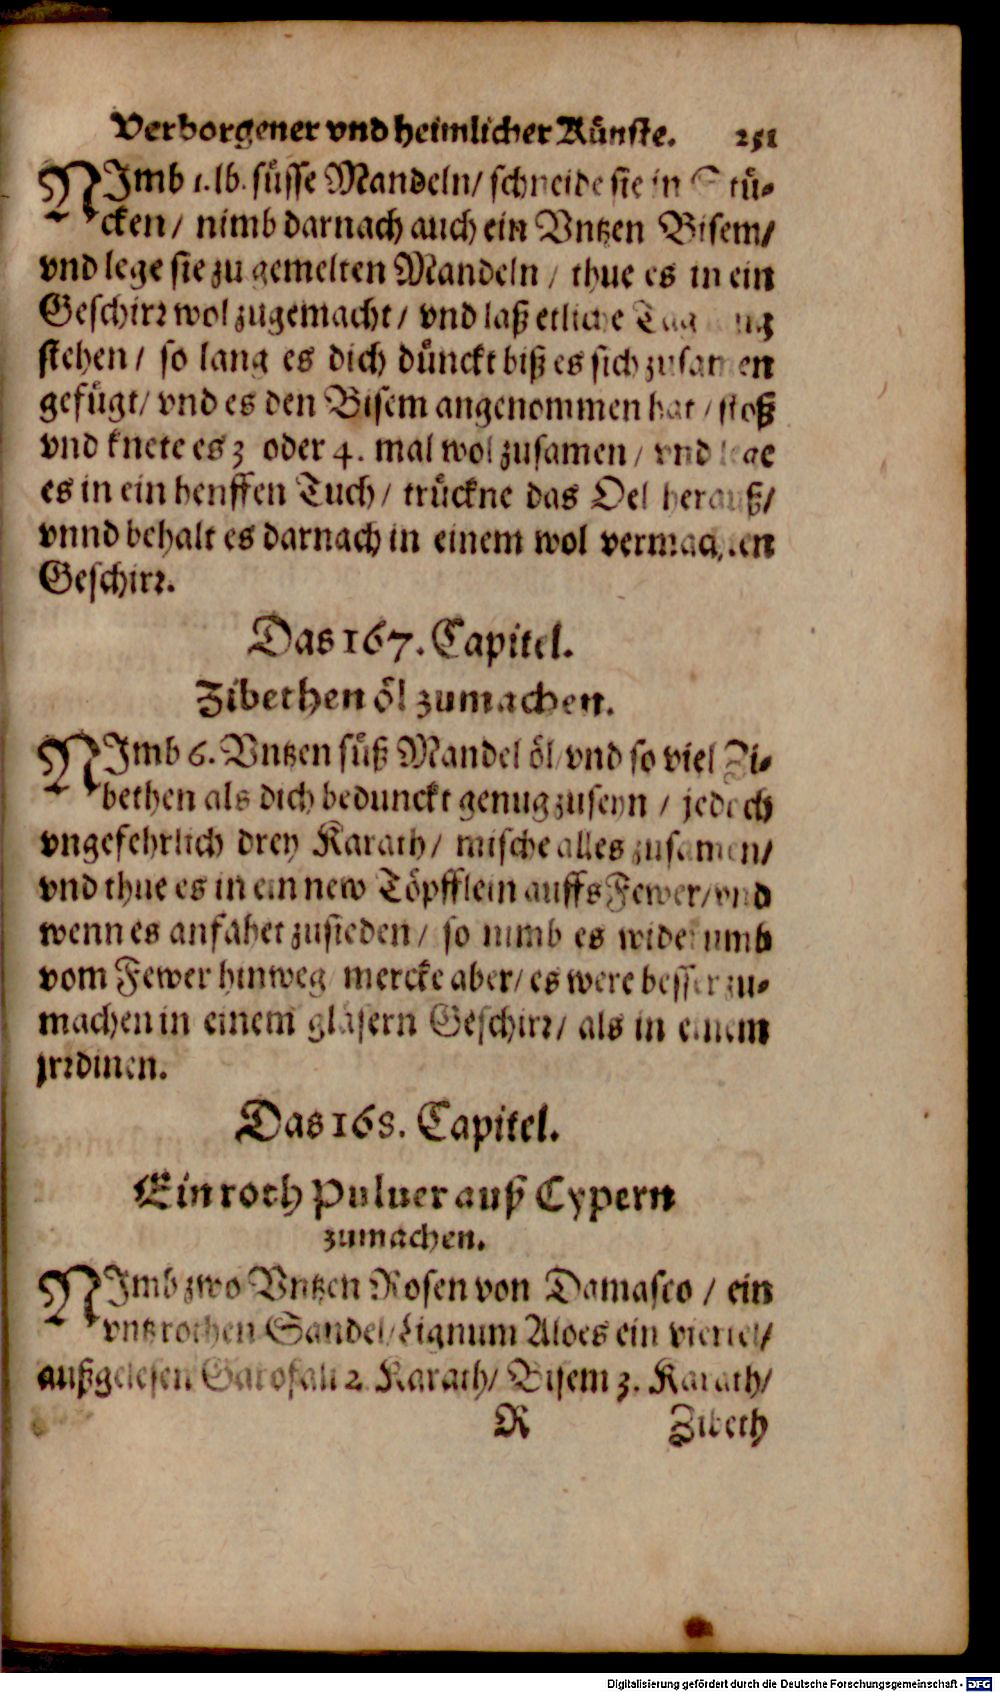 Verborgener vnd heimlicher Künste. 251
NImb 1. lb. süsse Mandeln/ schneide sie in Stü-
cken/ nimb darnach auch ein Vntzen Bisem/
vnd lege sie zu gemelten Mandeln/ thue es in ein
Geschirr wol zugemacht/ vnd laß etliche Tag
stehen/ so lang es dich dünckt biß es sich zusamen
gefügt/ vnd es den Bisem angenommen hat/ stoß
vnd knete es 3 oder 4. mal wol zusamen/ vnd lege
es in ein henffen Tuch/ trückne das Oel herauß/
vnnd behalt es darnach in einem wol vermachten
Geschirr.
Das 167. Capitel.
Zibethen öl zumachen.
NImb 6. Vntzen süß Mandel öl/ vnd so viel Zi-
bethen als dich bedunckt genug zuseyn/ jedoch
vngefehrlich drey Karath/ mische alles zusamen/
vnd thue es in ein new Töpfflein auffs Fewer/ vnd
wenn es anfahet zusieden/ so nimb es widerumb
vom Fewer hinweg/ mercke aber/ es were besser zu-
machen in einem gläsern Geschirr/ als in einem
jrrdinen.
Das 168. Capitel.
Ein roth Puluer auß Cypern
zumachen.
NImb zwo Vntzen Rosen von Damasco/ ein
vntz rothen Sandel/ Lignum Aloes ein viertel/
außgelesen Garofali 2. Karath/ Bisem 3. Karath/
R Zibeth
Digitalisierung gefördert durch die Deutsche Forschungsgemeinschaft - DFG